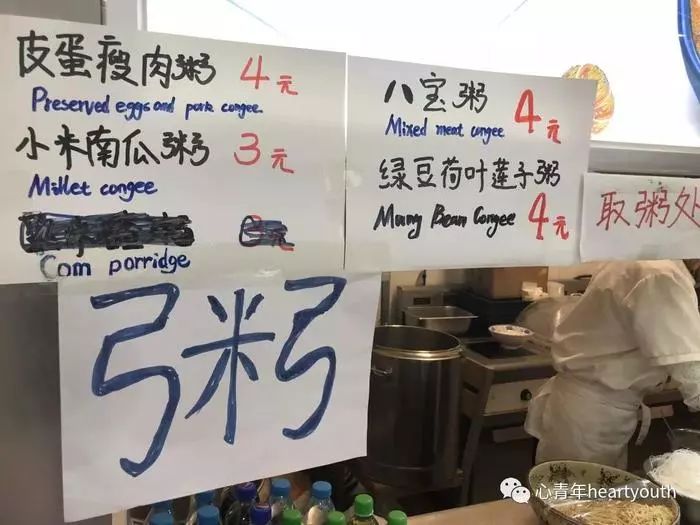 皮蛋瘦肉粥 4元
Preserved eggs and pork congee
小米南瓜粥 3元
Millet congee
元
Corn porridge
八宝粥 4元
Mixed meat congee
绿豆荷叶莲子粥
Mung Bean Congee 4元
取粥处
粥
心青年heartyouth